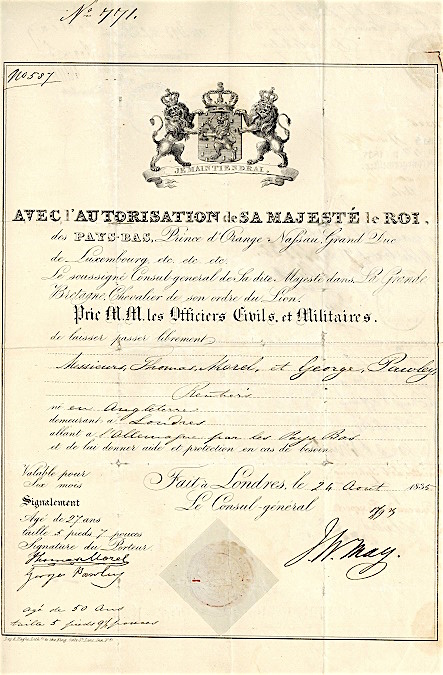 No 771.
No 587
JE MAINTIENDRAI.
AVEC l'AUTORISATION de SA MAJESTÉ le ROI,
des PAYS-BAS, Prince d'Orange Nassau, Grand Duc
de Luxembourg, etc. etc. etc.
Le soussigné Consul-general de Sa dite Majesté dans La Grande
Bretagne, Chevalier de son ordre du Lion.
Prie M.M. les Officiers Civils, et Militaires.
de laisser passer librement
Messieurs, Thomas, Morel, et George, Pawley,
Rentiers
né en Angleterre
demeurant à Londres
allant à l'Allemagne par les Pays Bas
et de lui donner aide et protection en cas de besoin
Valable pour
Six mois
Fait à Londres, le 24 Aout 1835
Le Consul-général
Signalement
Age de 27 ans
taille 5 pieds 7 pouces
Signature du Porteur
Thomas Morel
George Pawley
J W. May.
agé de 50 Ans
taille 5 pieds 9½ pouces